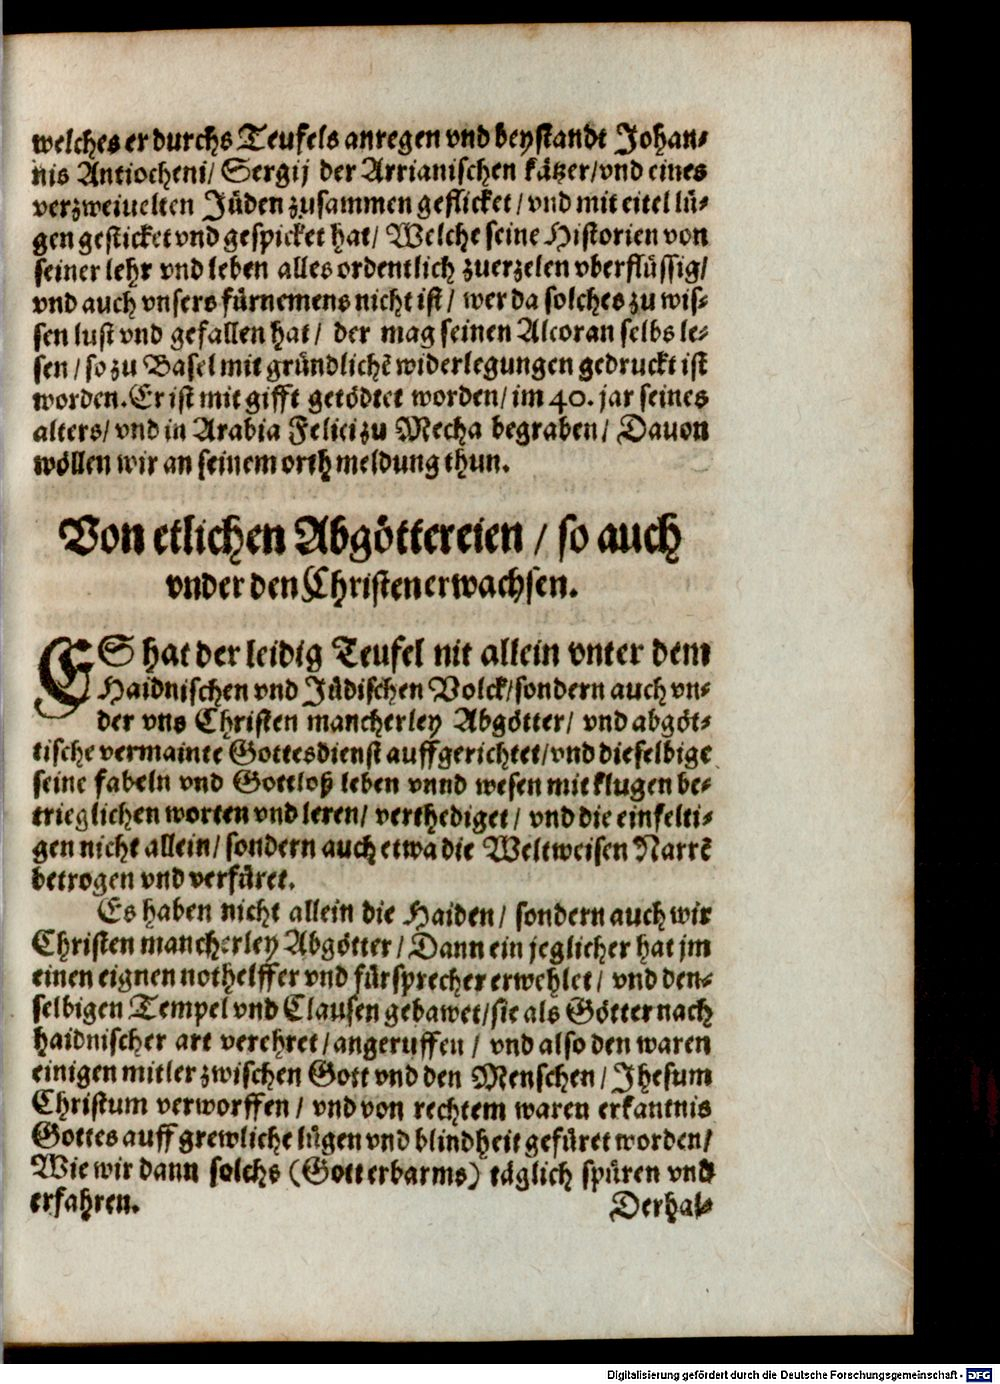 welches er durchs Teufels anregen vnd beystandt Johan-
nis Antiocheni/ Sergij der Arrianischen kätzer/vnd eines
verzweiuelten Jüden zusammen geflicket/ vnd mit eitel lü-
gen gesticket vnd gespicket hat/ Welche seine Historien von
seiner lehr vnd leben alles ordentlich zuerzelen vberflüssig/
vnd auch vnsers fürnemens nicht ist/ wer da solches zu wis-
sen lust vnd gefallen hat/ der mag seinen Alcoran selbs le-
sen/ so zu Basel mit gründlichẽ widerlegungen gedruckt ist
worden. Er ist mit gifft getödtet worden/ im 40. jar seines
alters/ vnd in Arabia Felici zu Mecha begraben/ Dauon
wöllen wir an seinem orth meldung thun.
Von etlichen Abgöttereien / so auch
vnder den Christen erwachsen.
ES hat der leidig Teufel nit allein vnter dem
Haidnischen vnd Jüdischen Volck/sondern auch vn-
der vns Christen mancherley Abgötter/ vnd abgöt-
tische vermainte Gottesdienst auffgerichtet/vnd dieselbige
seine fabeln vnd Gottloß leben vnnd wesen mit klugen be-
trieglichen worten vnd leren/ verthediget/ vnd die einfelti-
gen nicht allein/ sondern auch etwa die Weltweisen Narrẽ
betrogen vnd verfüret.
Es haben nicht allein die Haiden/ sondern auch wir
Christen mancherley Abgötter/ Dann ein jeglicher hat jm
einen eignen nothelffer vnd fürsprecher erwehlet/ vnd den-
selbigen Tempel vnd Clausen gebawet/sie als Götter nach
haidnischer art verehret/angeruffen/ vnd also den waren
einigen mitler zwischen Gott vnd den Menschen/ Jhesum
Christum verworffen/ vnd von rechtem waren erkantnis
Gottes auff grewliche lügen vnd blindheit gefüret worden/
Wie wir dann solchs (Gott erbarms) täglich spüren vnd
erfahren. Derhal-
Digitalisierung gefördert durch die Deutsche Forschungsgemeinschaft - DFG